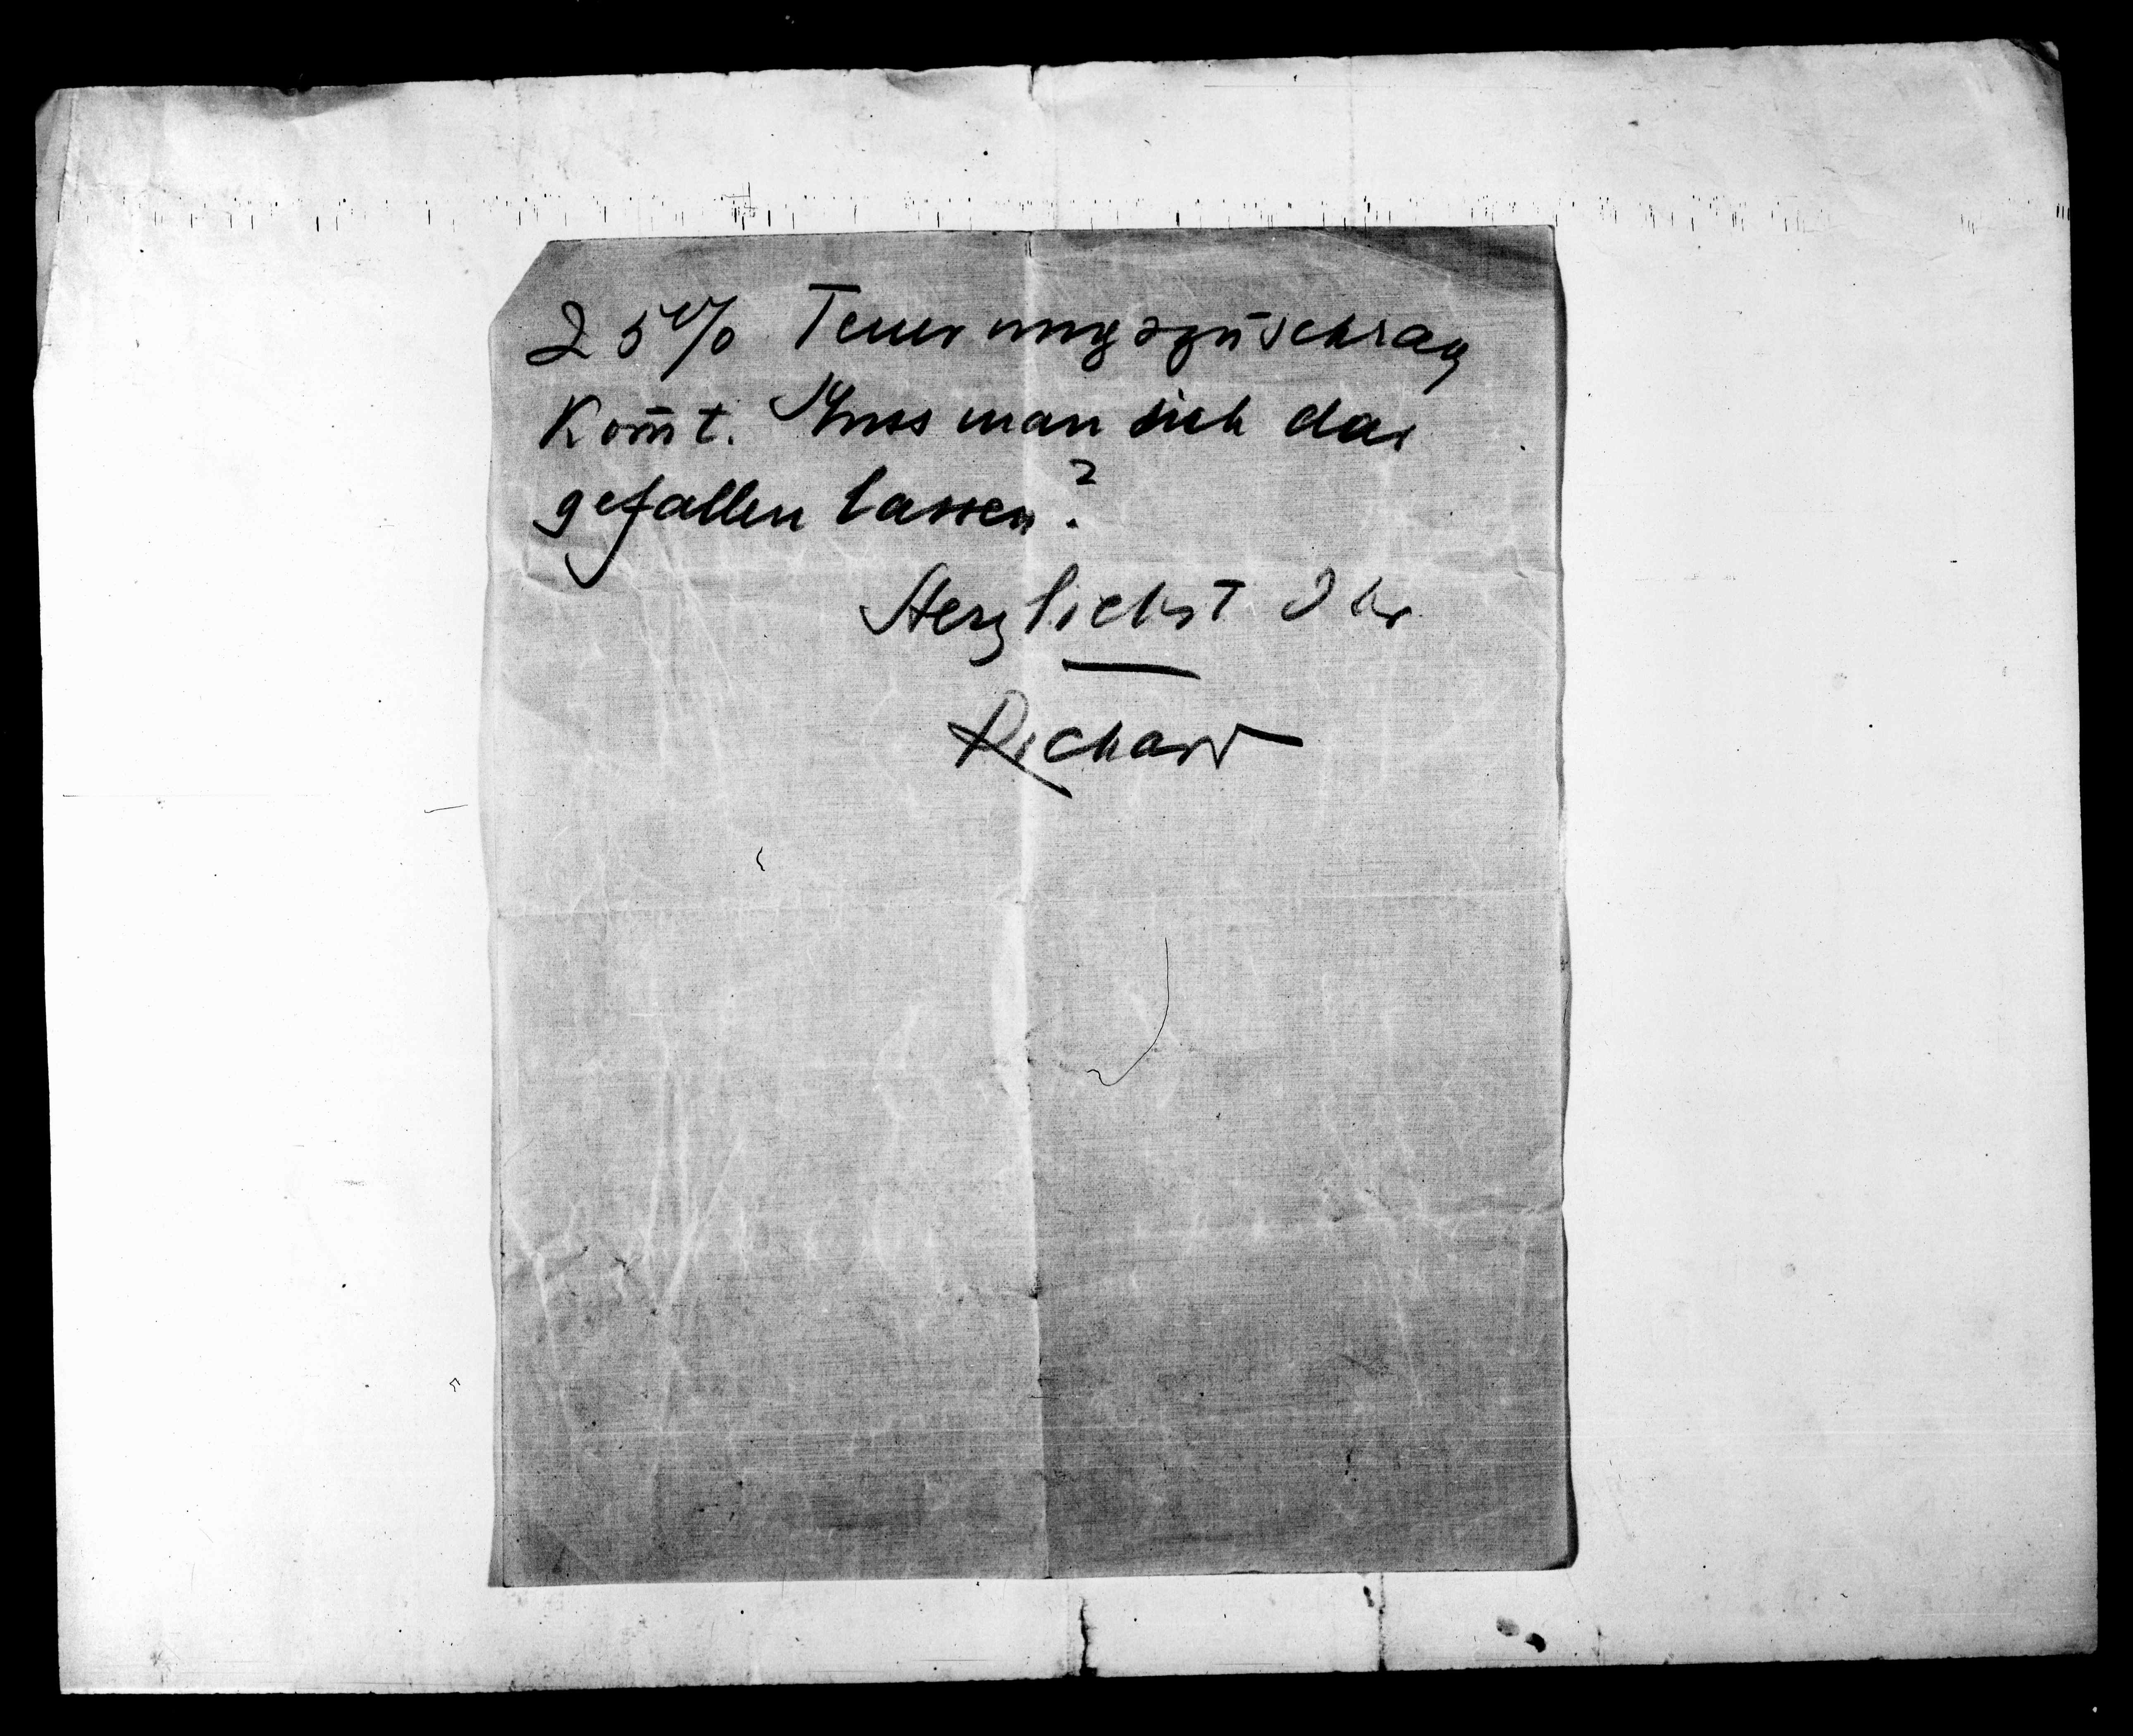 25% Teuerungszuschlag
Kom̄t. Muss man sich das
gefallen lassen?
Herzlichst Ihr
Richard